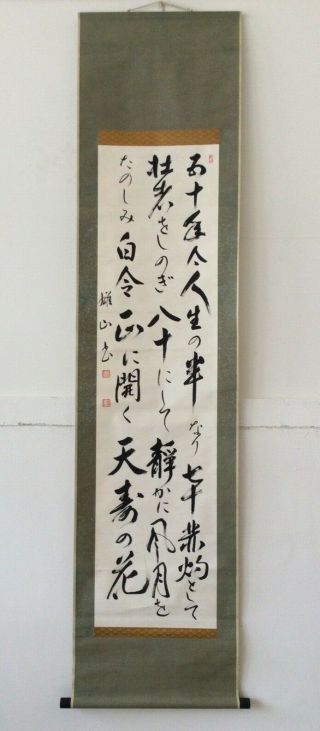 五十年今人生の半なり七十灼として
壮者をしのぎ八十にして靜かに風月を
たのしみ白令正に開く天寿の花
雄山書